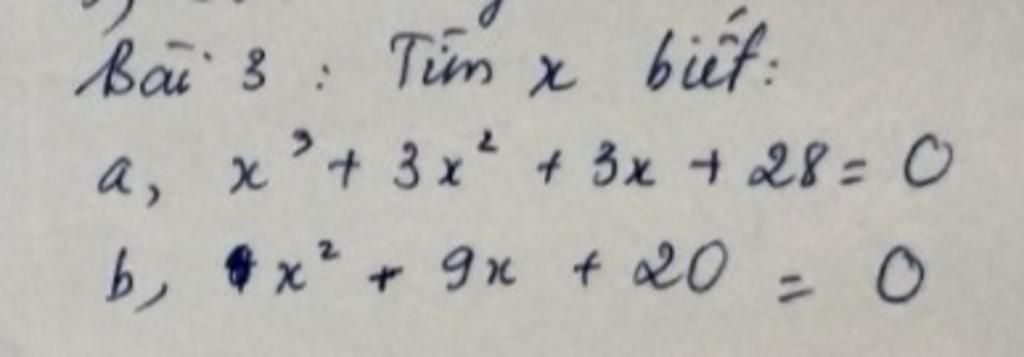 Bài 3 : Tìm x biết:
a, x³ + 3x² + 3x + 28 = 0
b, x² + 9x + 20 = 0